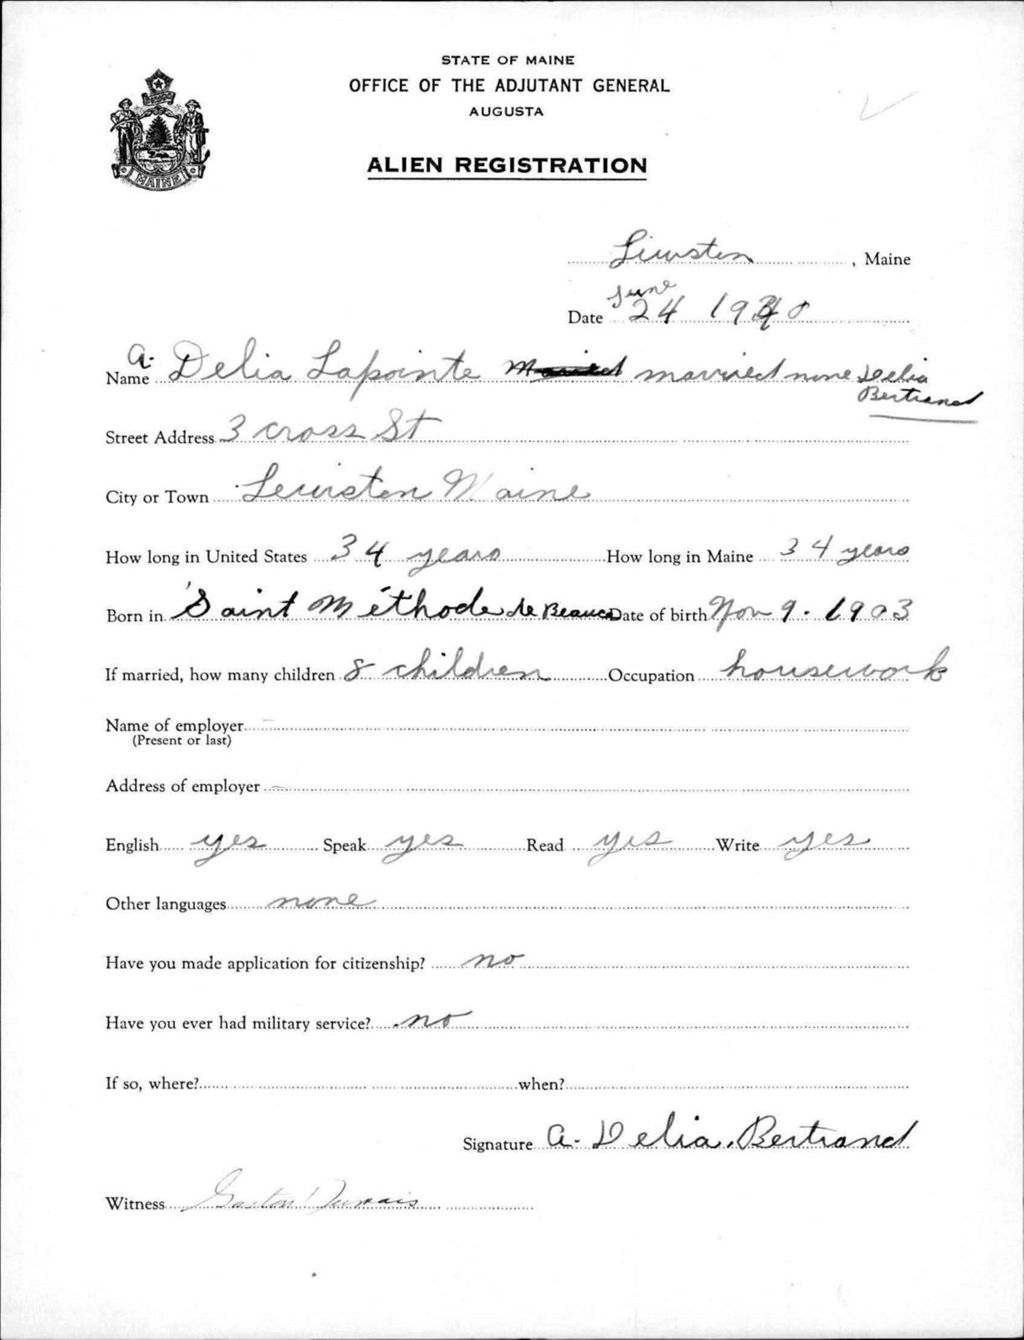 STATE OF MAINE
OFFICE OF THE ADJUTANT GENERAL
AUGUSTA
MAINE
ALIEN REGISTRATION
Lewiston, Maine
Date June 24 1940
Name A. Delia Lapointe married name Delia Bertrand
Street Address 3 cross St
City or Town Lewiston Maine
How long in United States 34 years How long in Maine 34 years
Born in Saint Méthode de Beauce Date of birth Nov 9. 1903
If married, how many children 8 children Occupation housework
Name of employer
(Present or last)
Address of employer
English yes Speak yes Read yes Write yes
Other languages none
Have you made application for citizenship? no
Have you ever had military service? no
If so, where? when?
Signature A. Delia Bertrand
Witness Gaston Dumais